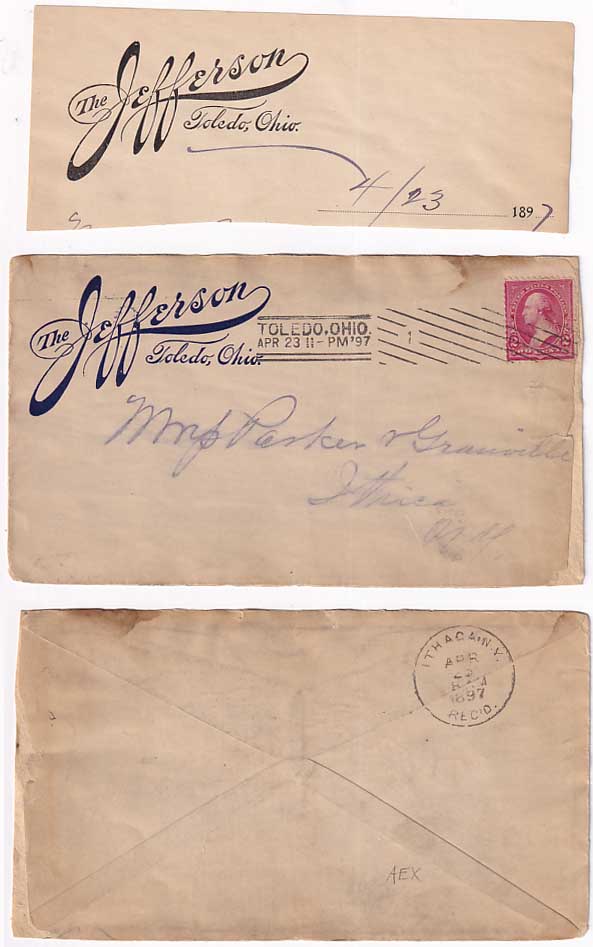 The Jefferson
Toledo, Ohio.
4/23 1897
The Jefferson
Toledo, Ohio.
TOLEDO, OHIO.
APR 23 11-PM '97
1
Parker & Granville
Ithica
N.Y.
ITHACA, N.Y.
APR
1897
REC'D.
AEX